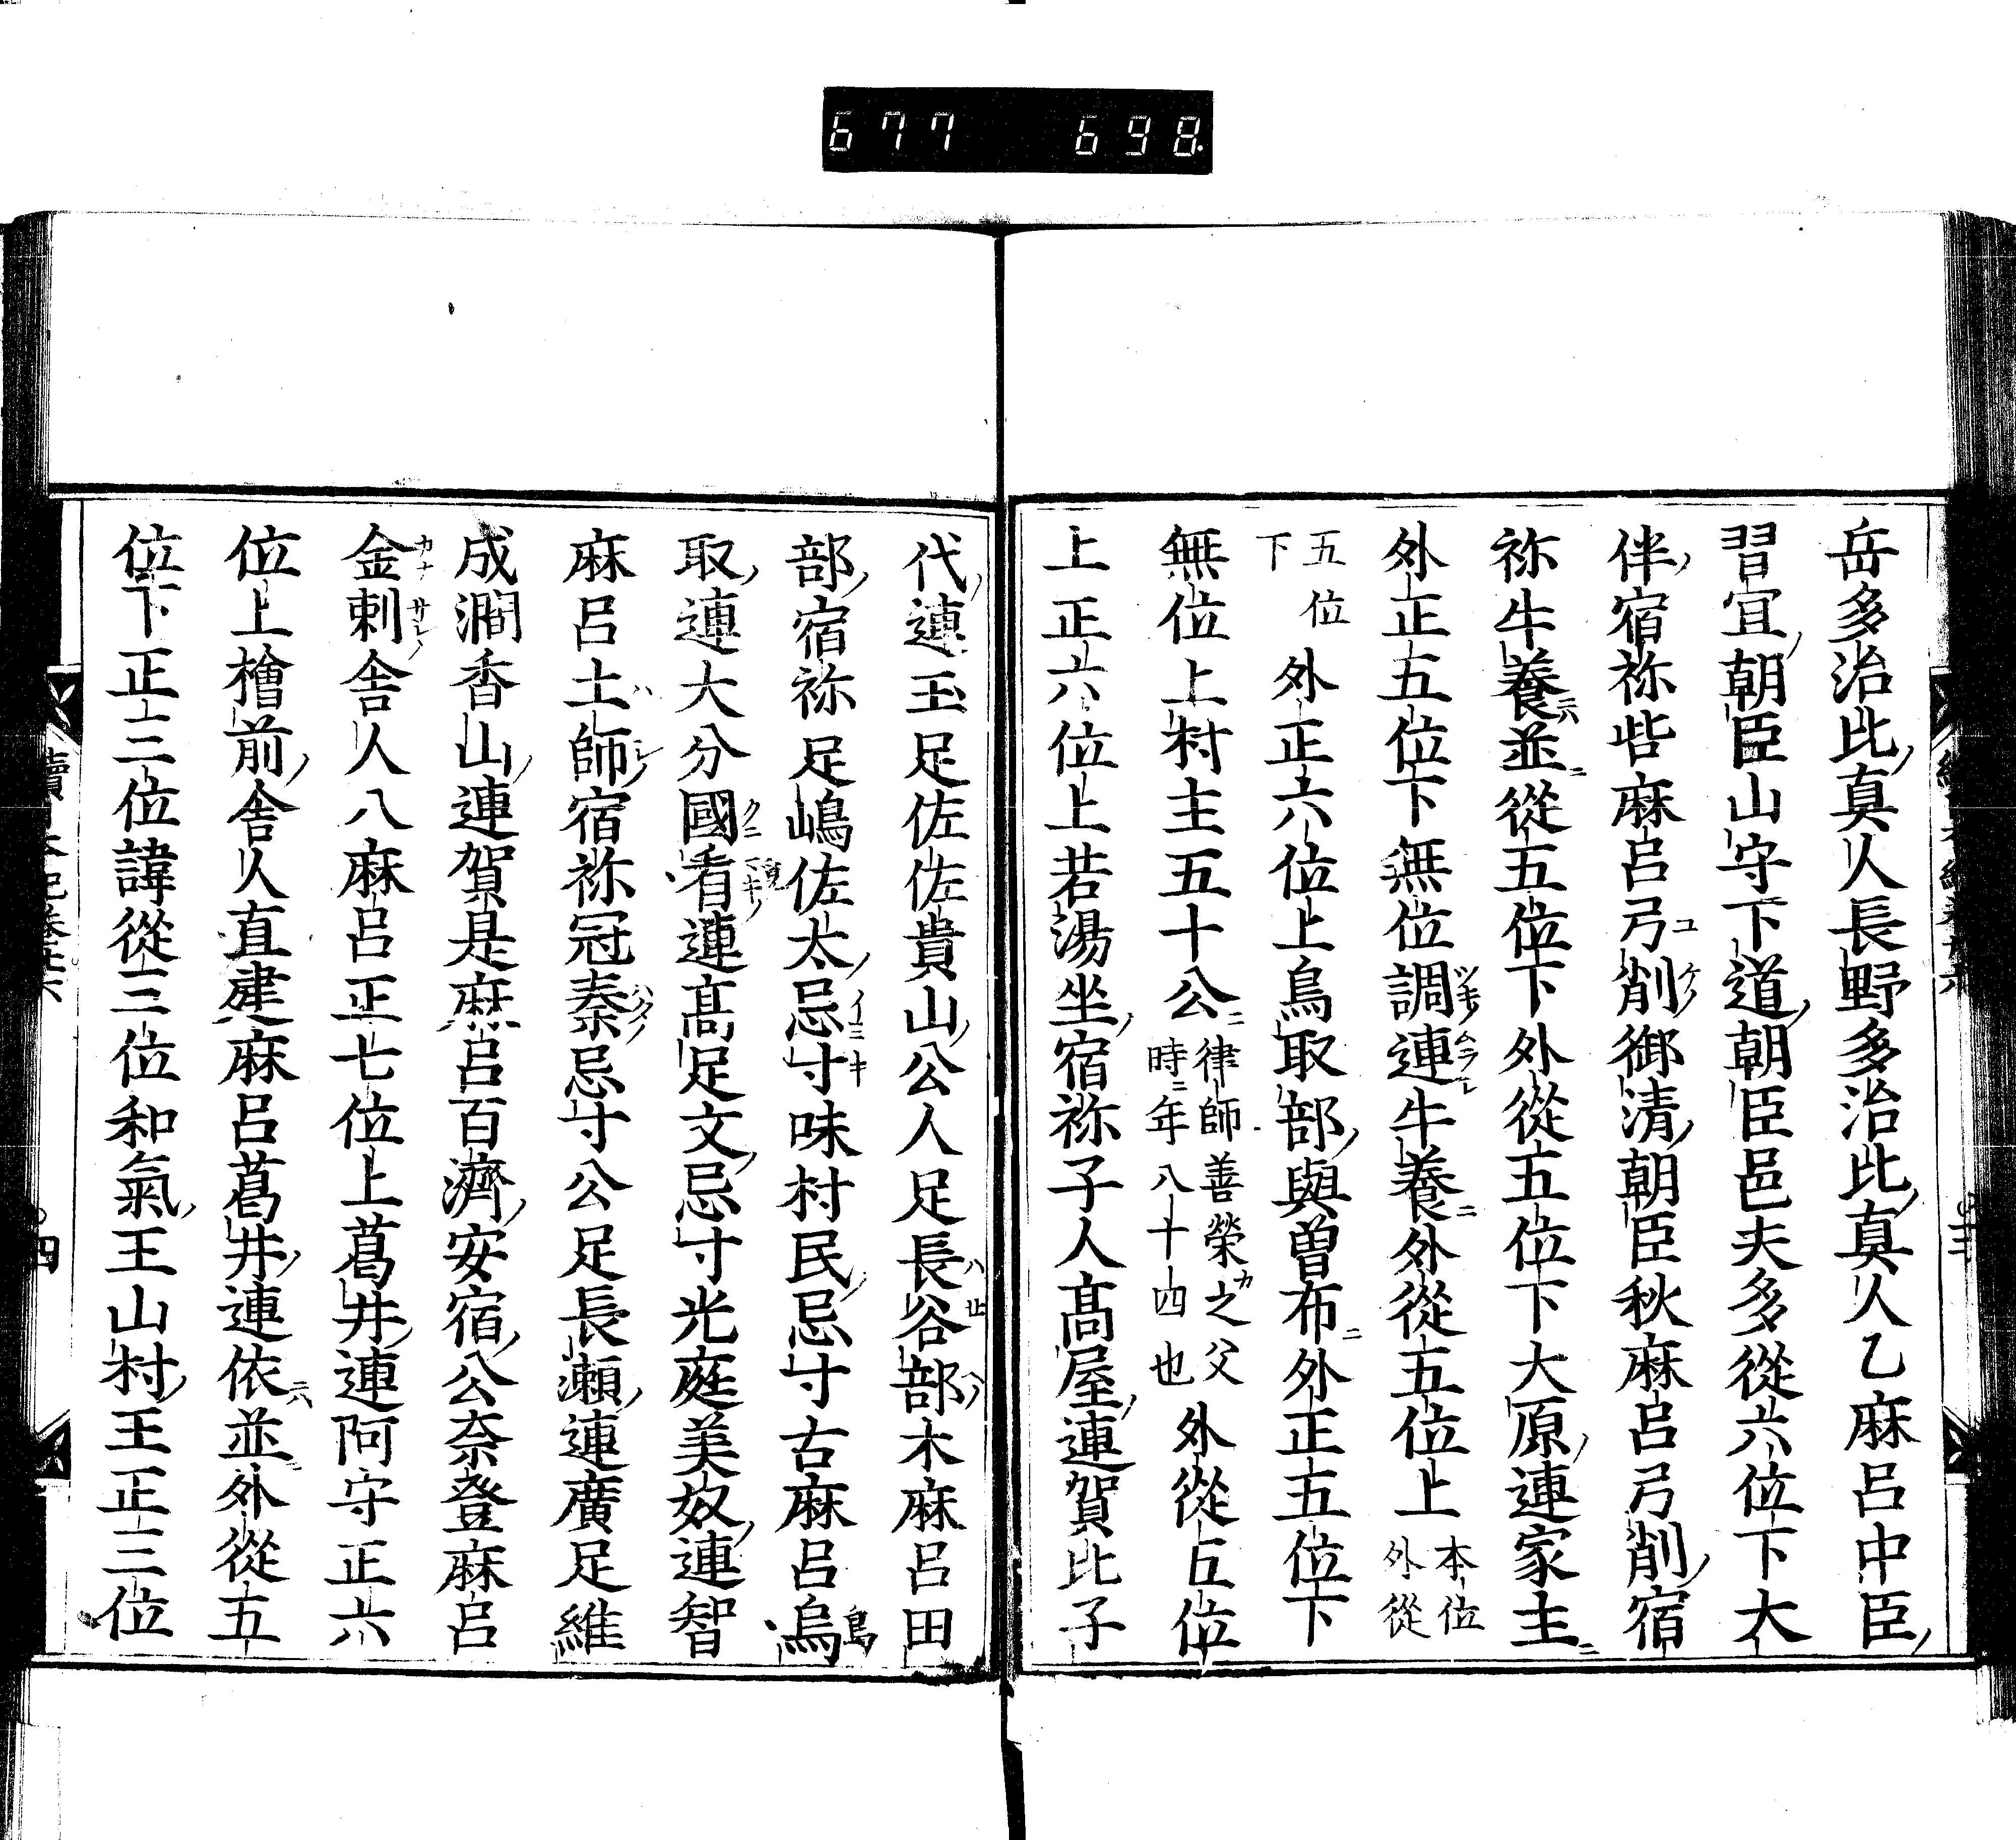 677 698
岳多治比真人長野多治比真人乙麻呂中臣
習宜朝臣山守下道朝臣邑夫多從六位下大
伴宿祢呰麻呂弓削御清朝臣秋麻呂弓削宿
祢牛養並從五位下外從五位下大原連家主
外正五位下無位調連牛養外從五位上本位外從
五位下外正六位上鳥取部與曽布外正五位下
無位上村主五十公律師善榮之父時年八十四也外從五位
上正六位上若湯坐宿祢子人髙屋連賀比子
代連玉足佐佐貴山公人足長谷部木麻呂田
部宿祢足嶋佐太忌寸味村民忌寸古麻呂鳥
取連大分國看連髙足文忌寸光庭美奴連智
麻呂土師宿祢冠秦忌寸公足長瀬連廣足維
成澗香山連賀是麻呂百濟安宿公奈登麻呂
金刺舎人八麻呂正七位上葛井連阿守正六
位上檜前舎人直建麻呂葛井連依並外從五
位下正三位諱從三位和氣王山村王正三位